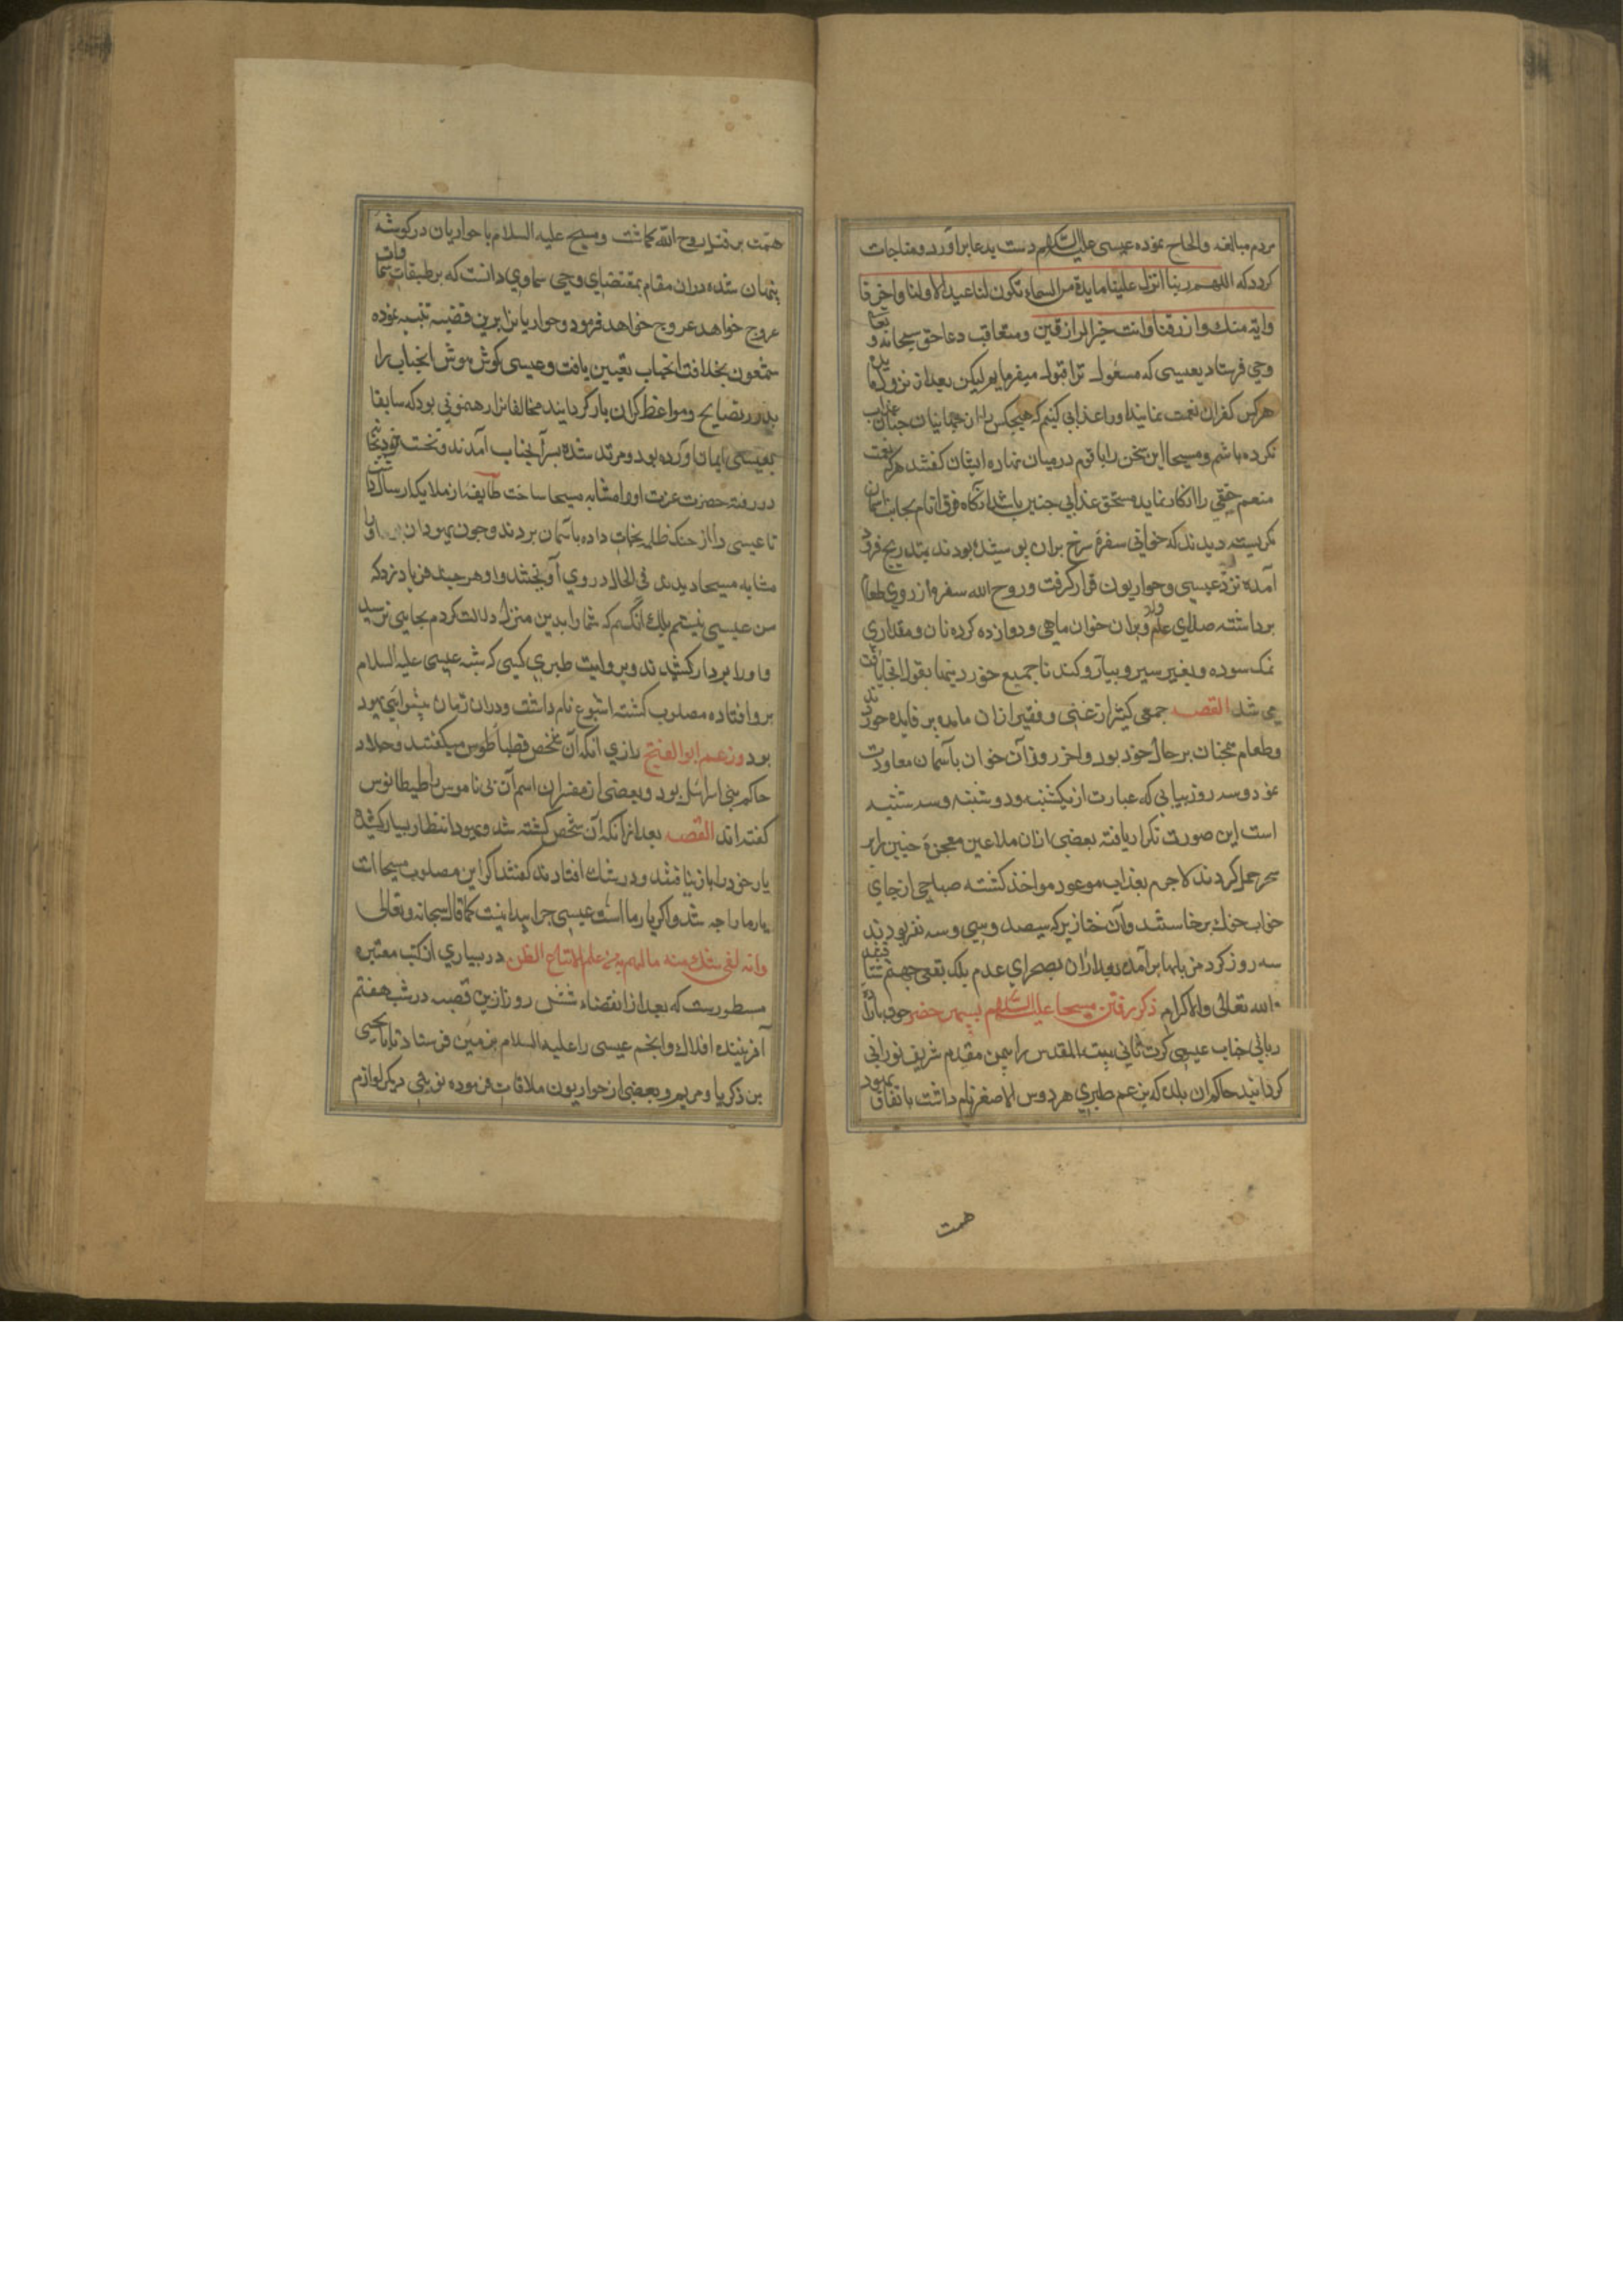 مردم مبالغه والحاح نموده عیسی علیه السلام دست بدعا برآورد و مناجات
کرد که اللهم ربنا انزل علینا مایدة من السماء تکون لنا عیدا لاولنا واخرنا
وایة منک وارزقنا وانت خیر الرازقین ومتعاقب دعا حق سبحانه و تعالی
وحی فرستاد بعیسی که مسئول ترا قبول میفرمایم لیکن بعد از نزول مایده
هرکس کفران نعمت نماید اورا عذابی کنیم که هیچکس را از جهانیان چنان عذاب
نکرده باشم ومسیحا این سخن را با قوم درمیان نهاده ایشان گفتند هرکه نعمت
منعم حقیقی را انکار نماید مستحق عذابی چنین باشد آنگاه فوق انام بجانب آسمان
نگریسته دیدند که خوانی سفرهٔ سرخ بران پوشیده بودند بتدریج فرود
آمده نزد عیسی وحواریون قرار گرفت و روح الله سفره از روی طعام
برداشته صلای عام داد وبران خوان ماهی و دوازده کرده نان ومقداری
نمک سوده وبغیر سیر وپیاز وکندنا جمیع
می شد القصه جمعی کثیر از غنی وفقیر ازان مایده پر فایده خوردند
وطعام همچنان برحال خود بود واخر روز آن خوان بآسمان معاودت
نمود وسه روز پیاپی که عبارت از یکشنبه ودوشنبه وسه شنبه
است این صورت تکرار یافته بعضی ازان ملاعین معجزهٔ چنین را بر
سحر حمل کردند لاجرم بعذاب موعود مواخذ گشته صباحی از جای
خواب خوک برخاستند وآن خنازیر که سیصد وسی وسه نفر بودند
سه روز گرد مزبلها برآمده بعد ازان بصحرای عدم بلک بقعر جهنم شتافتند
الله تعالی والاکرام ذکر رفتن مسیحا علیه السلام
ربانی جناب عیسی کرت ثانی بیت المقدس را بیمن مقدم شریف نورانی
گردانید حاکم ان بلده که بزعم طبری هردوس الاصغر نام داشت باتفاق یهود
همت
همت بر قتل روح الله گماشت ومسیح علیه السلام با حواریان در گوشه
پنهان شده دران مقام بمقتضای وحی سماوی دانست که بر طبقات سماوات
عروج خواهد عروج خواهد فرمود وحواریانرا برین قضیه تنبیه نموده
شمعون بخلافت انجناب تعیین یافت وعیسی گوش هوش انجناب را
بدرر نصایح ومواعظ گران بار گردانید مخالفانرا رهنمونی بود که سابقا
بعیسی ایمان آورده بود ومرتد شده بسر آنجناب آمدند ونخست
در رفته حضرت عزت اورا مشابه مسیحا ساخت طایفه از ملایکه ارسال داشت
تا عیسی را از چنک ظلمه نجات داده بآسمان بردند وچون یهودان
مشابه مسیحا دیدند فی الحال در وی آویختند واو هر چند فریاد زد که
من عیسی نیستم بلک آنکسم که شما را بدین منزل دلالت کردم بجایی نرسید
واورا بردار کشیدند وبروایت طبری کسی که شبه عیسی علیه السلام
برو افتاده مصلوب گشته اشیوع نام داشت ودران زمان پیشوای یهود
بود وزعم ابو الفتح رازی آنکه آن شخص قطیاطوس میگفتند وجلاد
حاکم بنی اسرائیل بود وبعضی از مفسران اسم آن بی ناموس را طیطانوس
گفته اند القصه بعد ازانکه آن شخص کشته شد ویهود انتظار بسیار کشیده
یار خود را باز نیافتند ودر شک افتادند گفتند اگر این مصلوب مسیحا است
یار ما را چه شد واگر یار ما است عیسی چرا پیدا نیست کما قال سبحانه وتعالی
وانه لفی شک منه ما لهم به من علم الا اتباع الظن در بسیاری از کتب معتبره
مسطورست که بعد از انقضاء شش روز ازین قصه در شب هفتم
آفریننده افلاک وانجم عیسی را علیه السلام بزمین فرستاد تا با یحیی
بن ذکریا ومریم وبعضی از حواریون ملاقات فرموده نوبتی دیگر لوازم